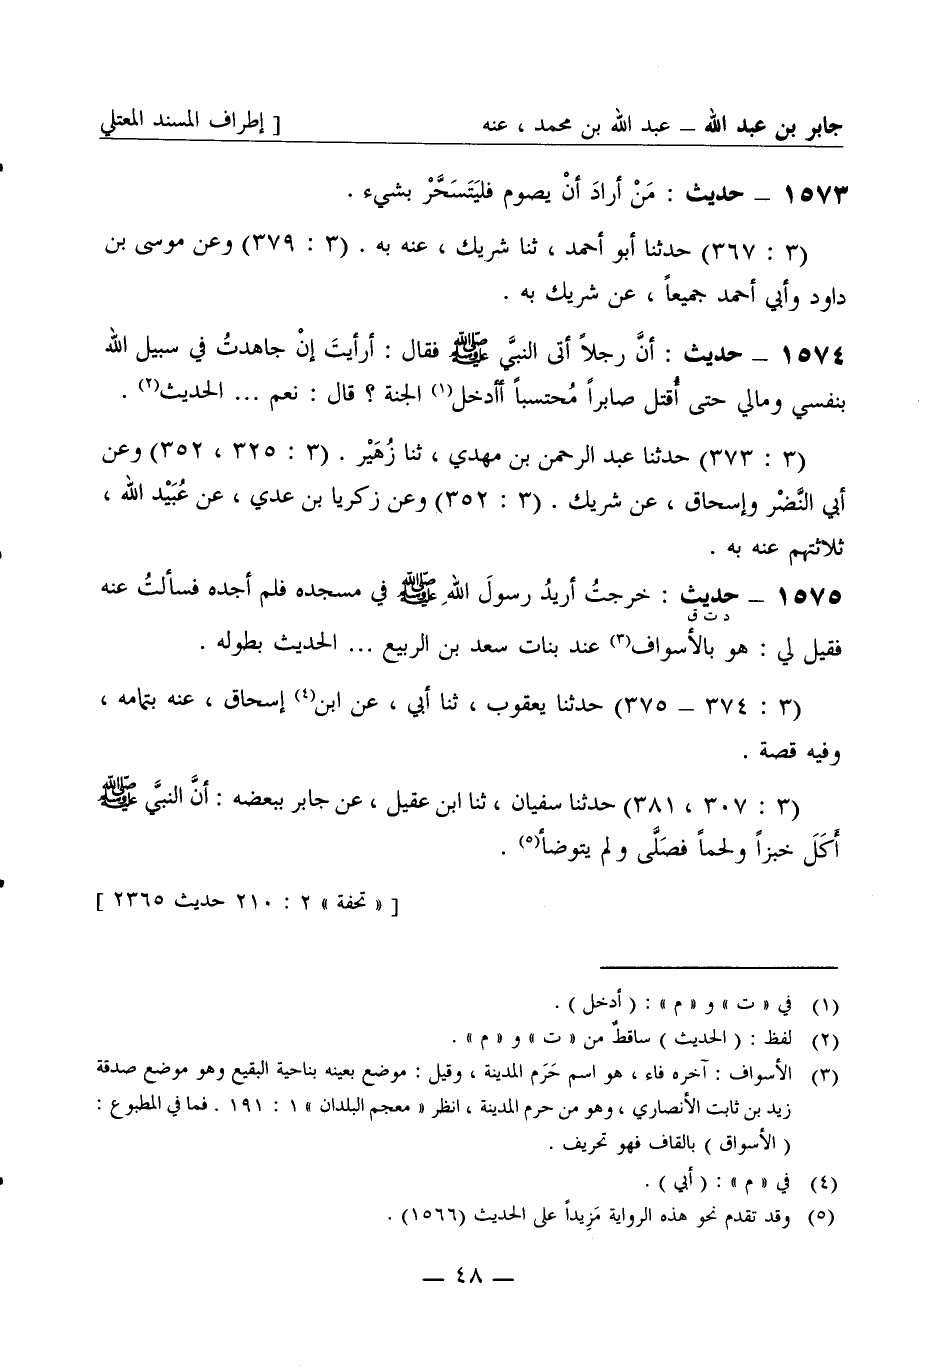 جابر بن عبد الله – عبد الله بن محمد ، عنه [ إطراف المسند المعتلي
١٥٧٣ – حديث : مَنْ أرادَ أنْ يصوم فليَتَسَحَّرْ بشيء .
(٣ : ٣٦٧) حدثنا أبو أحمد ، ثنا شريك ، عنه به . (٣ : ٣٧٩) وعن موسى بن
داود وأبي أحمد جميعاً ، عن شريك به .
١٥٧٤ – حديث : أنَّ رجلاً أتى النبيَّ ﷺ فقال : أرأيتَ إنْ جاهدتُ في سبيل الله
بنفسي ومالي حتى أُقتل صابراً مُحتسباً أأدخل(١) الجنة ؟ قال : نعم ... الحديث(٢) .
(٣ : ٣٧٣) حدثنا عبد الرحمن بن مهدي ، ثنا زُهَيْر . (٣ : ٣٢٥ ، ٣٥٢) وعن
أبي النَّضْر وإسحاق ، عن شريك . (٣ : ٣٥٢) وعن زكريا بن عدي ، عن عُبَيْد الله ،
ثلاثتهم عنه به .
١٥٧٥ – حديث : خرجتُ أريدُ رسولَ اللهِ ﷺ في مسجده فلم أجده فسألتُ عنه
د ت ق
فقيل لي : هو بالأسواف(٣) عند بنات سعد بن الربيع ... الحديث بطوله .
(٣ : ٣٧٤ – ٣٧٥) حدثنا يعقوب ، ثنا أبي ، عن ابن(٤) إسحاق ، عنه بتمامه ،
وفيه قصة .
(٣ : ٣٠٧ ، ٣٨١) حدثنا سفيان ، ثنا ابن عقيل ، عن جابر ببعضه : أنَّ النبيَّ ﷺ
أَكَلَ خبزاً ولحماً فصَلَّى ولم يتوضأ(٥) .
[ « تحفة » ٢ : ٢١٠ حديث ٢٣٦٥ ]
(١) في « ت » و « م » : ( أدخل ) .
(٢) لفظ : ( الحديث ) ساقطٌ من « ت » و « م » .
(٣) الأسواف : آخره فاء ، هو اسم حَرَم المدينة ، وقيل : موضع بعينه بناحية البقيع وهو موضع صدقة
زيد بن ثابت الأنصاري ، وهو من حرم المدينة ، انظر « معجم البلدان » ١ : ١٩١ . فما في المطبوع :
( الأسواق ) بالقاف فهو تحريف .
(٤) في « م » : ( أبي ) .
(٥) وقد تقدم نحو هذه الرواية مَزِيداً على الحديث (١٥٦٦) .
– ٤٨ –